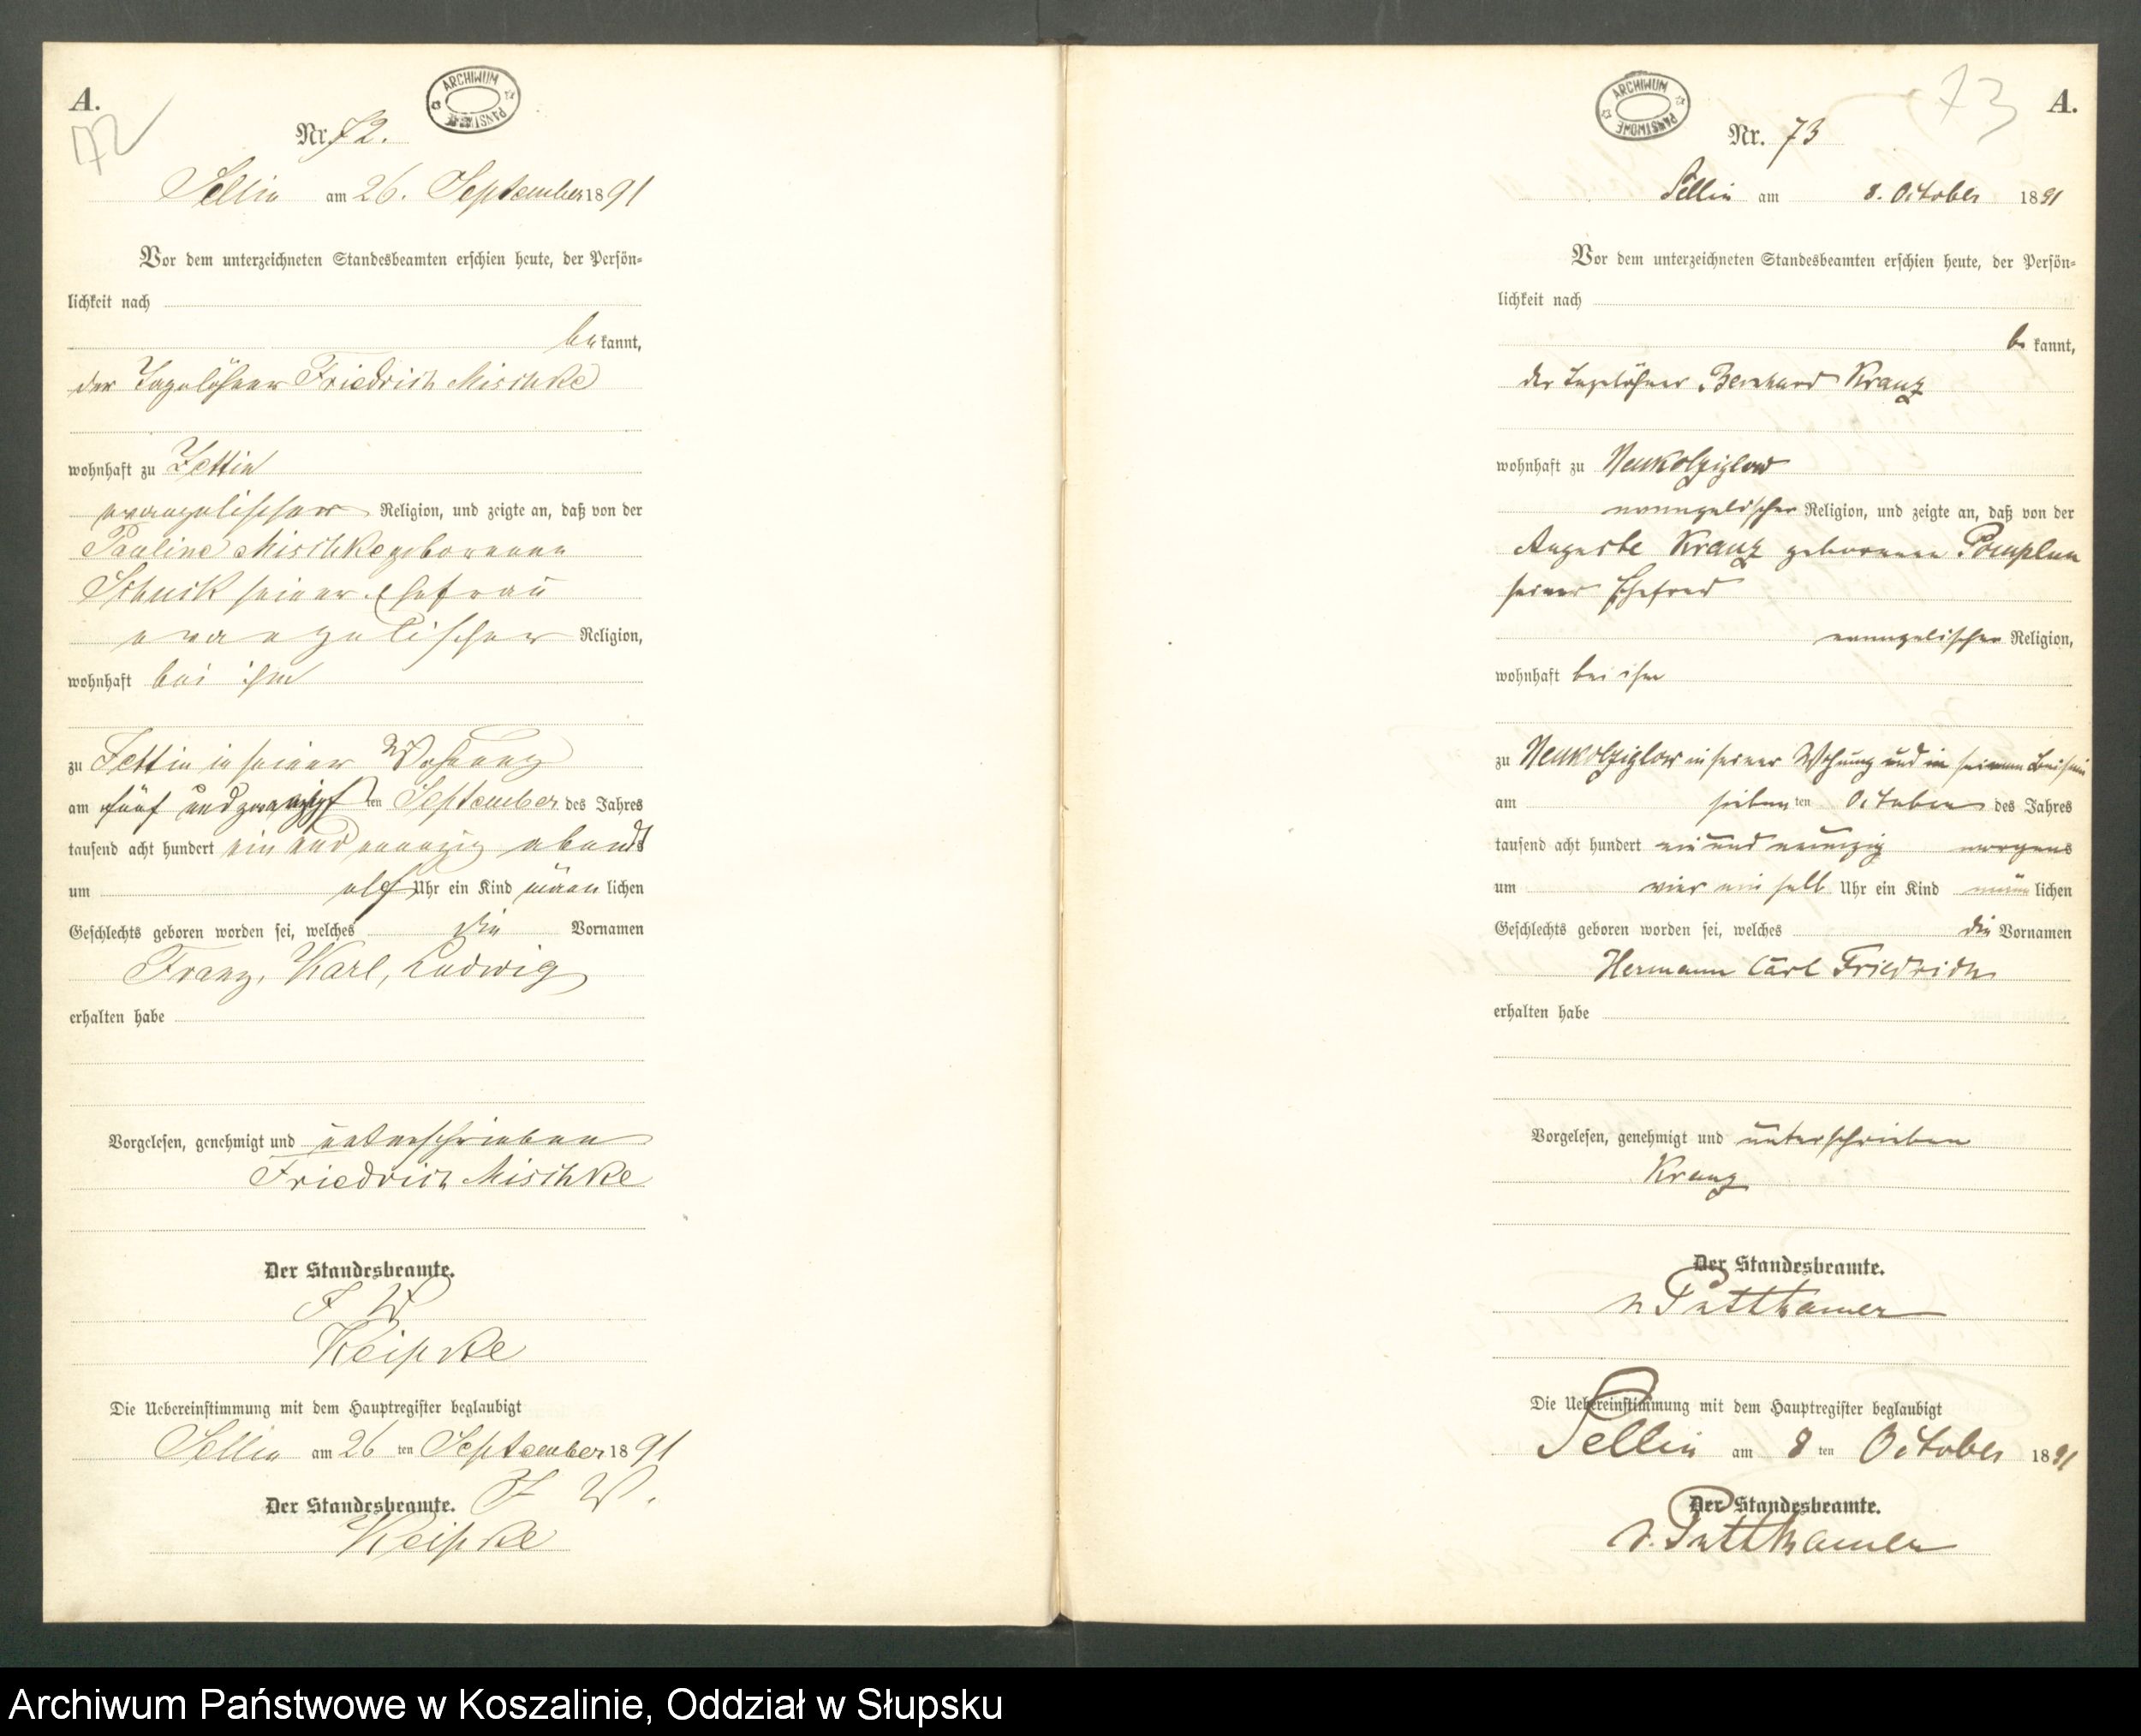 A.
72
ARCHIWUM PAŃSTWOWE
Nr. 72.
Sellin am 26. September 1891
Vor dem unterzeichneten Standesbeamten erschien heute, der Persön-
lichkeit nach
be kannt,
der Tagelöhner Friedrich Mischke
wohnhaft zu Zettin
evangelischer Religion, und zeigte an, daß von der
Pauline Mischke geborenen
Schuck seiner Ehefrau
evangelischer Religion,
wohnhaft bei ihm
zu Zettin in seiner Wohnung
am fünf und zwanzigsten September des Jahres
tausend acht hundert ein und neunzig abends
um elf Uhr ein Kind männ lichen
Geschlechts geboren worden sei, welches die Vornamen
Franz, Karl, Ludwig
erhalten habe
Vorgelesen, genehmigt und unterschrieben
Friedrich Mischke
Der Standesbeamte.
I W
Keipke
Die Uebereinstimmung mit dem Hauptregister beglaubigt
Sellin am 26 ten September 1891
Der Standesbeamte. I W.
Keipke
73
A.
ARCHIWUM PAŃSTWOWE
Nr. 73
Sellin am 8. October 1891
Vor dem unterzeichneten Standesbeamten erschien heute, der Persön-
lichkeit nach
be kannt,
der Tagelöhner Bernhard Kranz
wohnhaft zu Neukolziglow
evangelischer Religion, und zeigte an, daß von der
Auguste Kranz geborenen Pomplun
seiner Ehefrau
evangelischer Religion,
wohnhaft bei ihm
zu Neukolziglow in seiner Wohnung und in seinem Beisein
am sieben ten October des Jahres
tausend acht hundert ein und neunzig morgens
um vier ein halb Uhr ein Kind männ lichen
Geschlechts geboren worden sei, welches die Vornamen
Hermann Carl Friedrich
erhalten habe
Vorgelesen, genehmigt und unterschrieben
Kranz
Der Standesbeamte.
v. Puttkamer
Die Uebereinstimmung mit dem Hauptregister beglaubigt
Sellin am 8 ten October 1891
Der Standesbeamte.
v. Puttkamer
Archiwum Państwowe w Koszalinie, Oddział w Słupsku